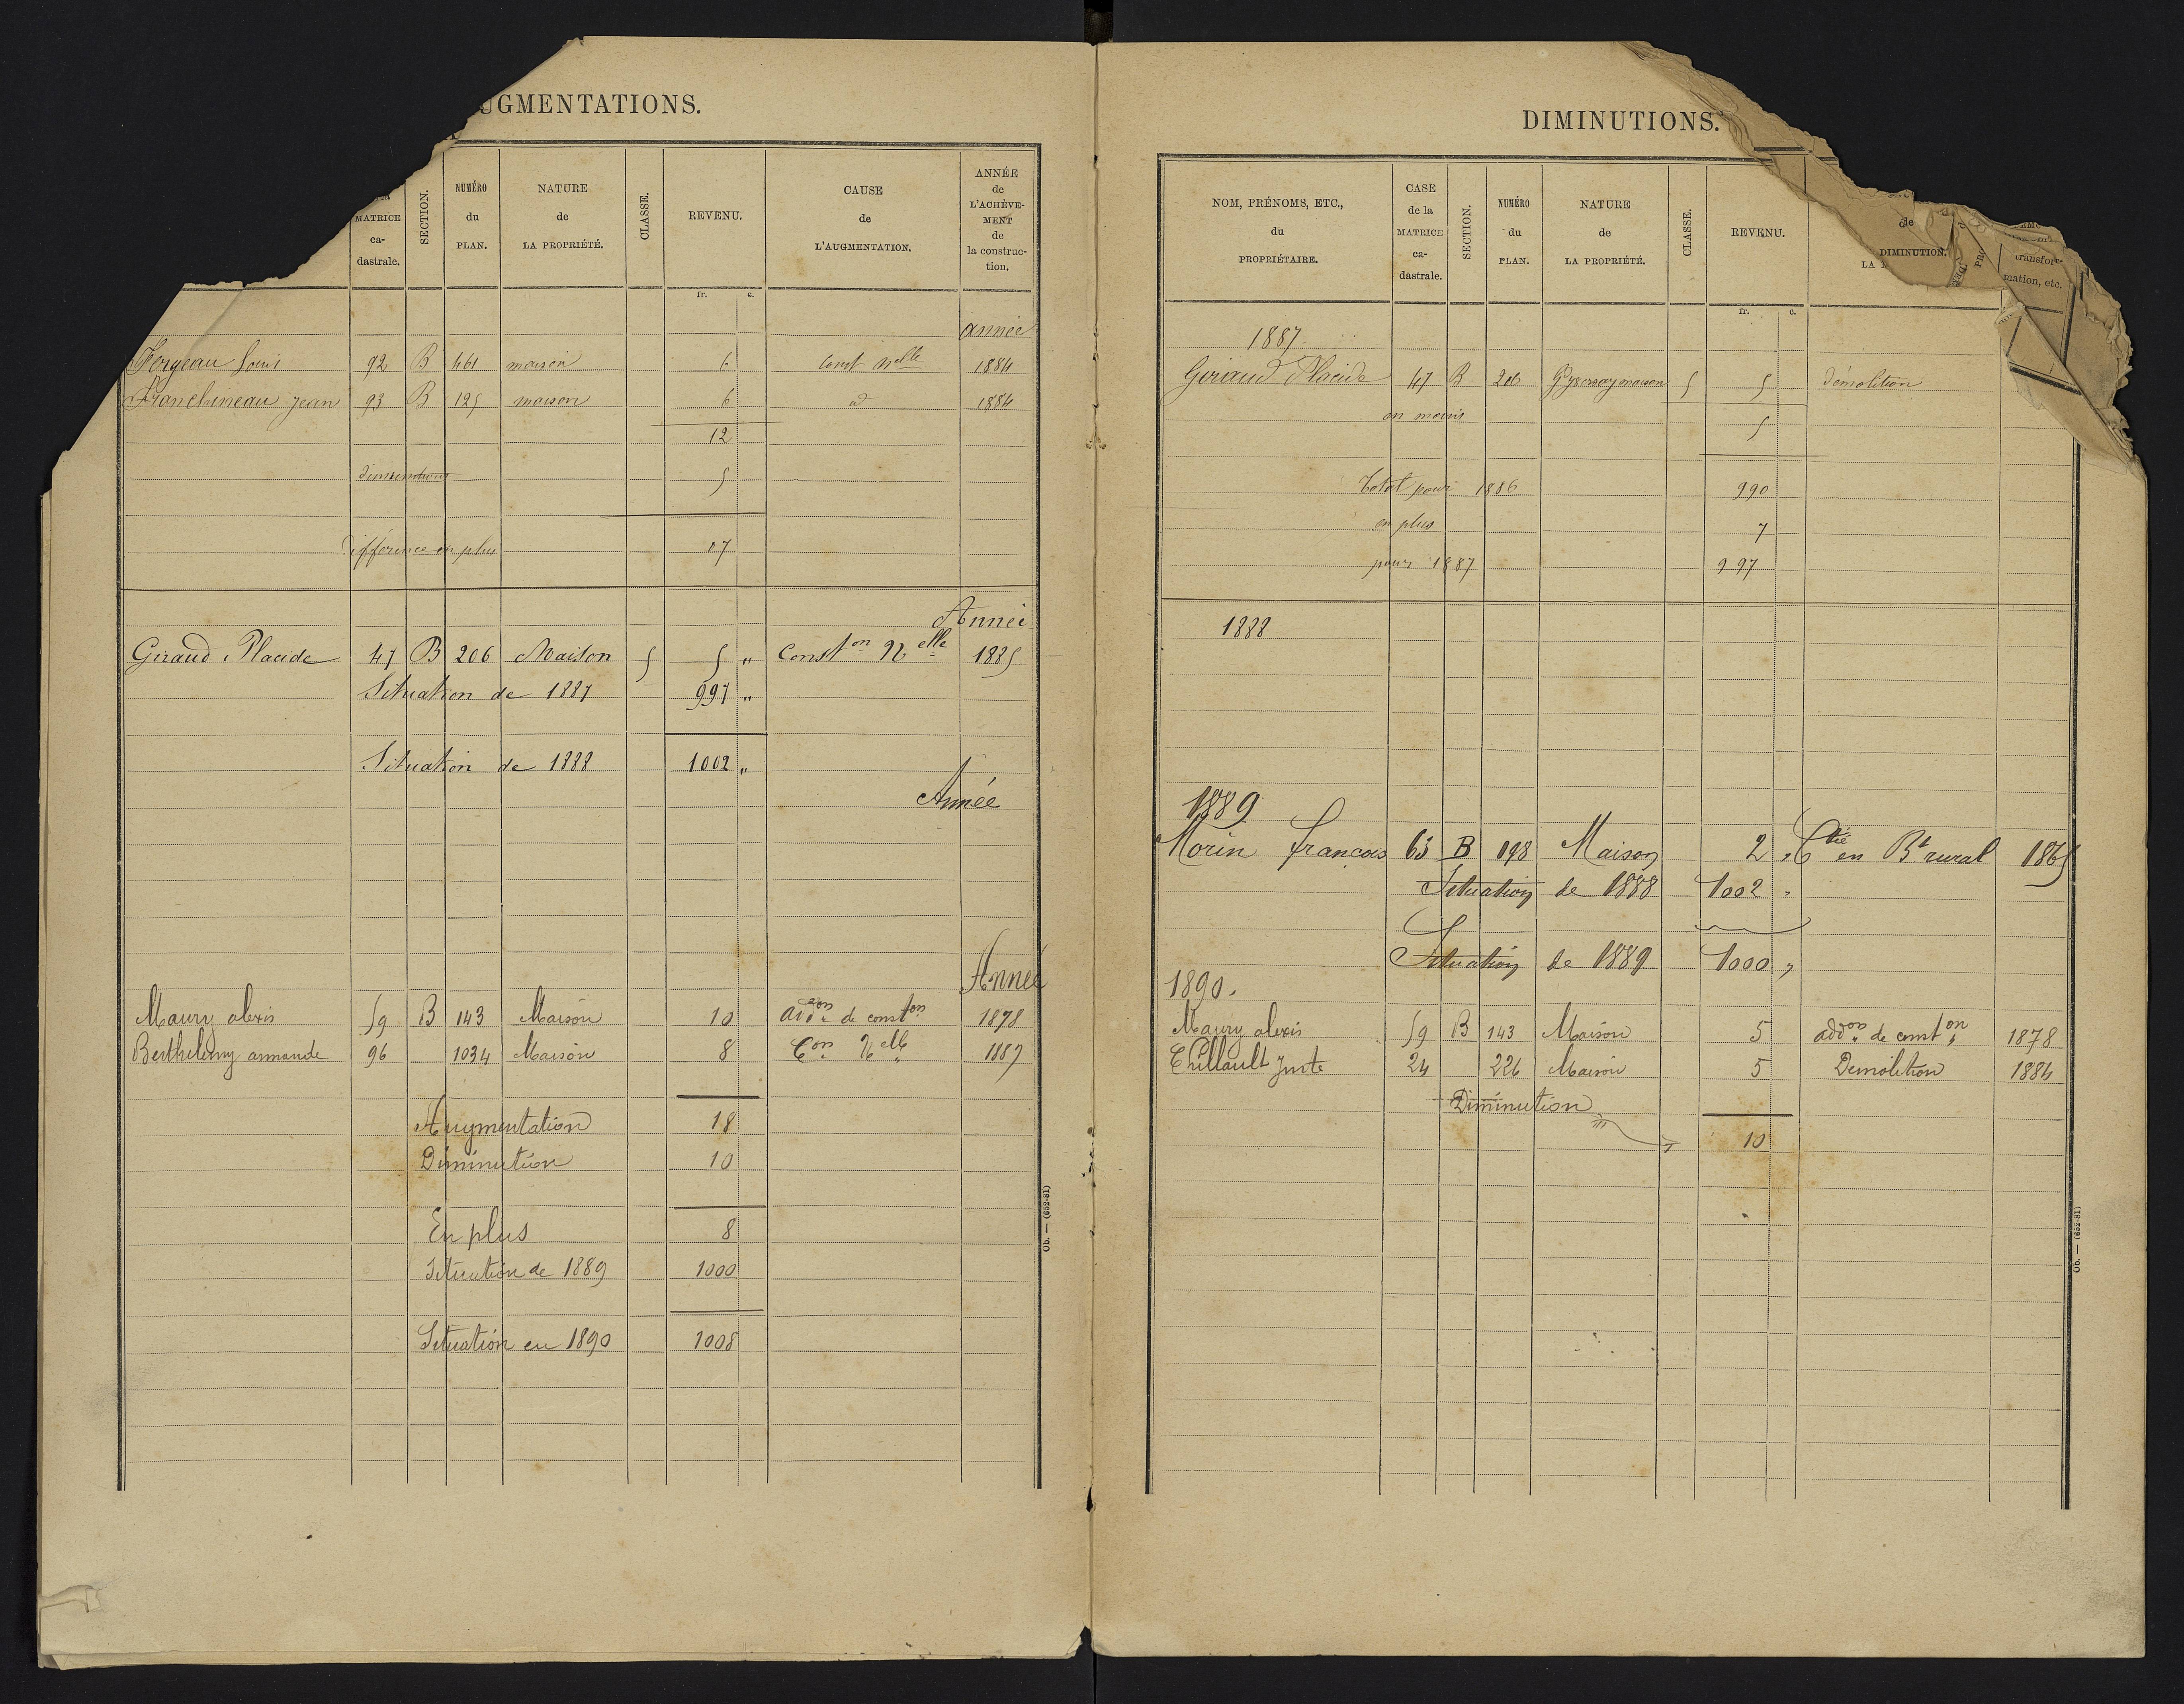 UGMENTATIONS.
MATRICE ca- dastrale.
SECTION.
NUMÉRO du PLAN.
NATURE de LA PROPRIÉTÉ.
CLASSE.
REVENU.
CAUSE de L'AUGMENTATION.
ANNÉE de L'ACHÈVE- MENT de la construc- tion.
fr. c.
année
Louis 92 B 461 maison 6 const nelle 1884
Franchineau Jean 93 B 125 maison 6 id 1884
12
diminutions 5
différence en plus 07
Année
Giraud Placide 47 B 206 Maison 5 5 " Conston Nelle 1885
Situation de 1887 997 "
Situation de 1888 1002 "
Année
Année
Maury alexis 59 B 143 Maison 10 addon de conston 1878
Berthelemy armande 96 1034 Maison 8 Con Nelle 1887
Augmentation 18
Diminution 10
En plus 8
Situation de 1889 1000
Situation en 1890 1008
Ob. — (652-81)
DIMINUTIONS.
NOM, PRÉNOMS, ETC., du PROPRIÉTAIRE.
CASE de la MATRICE ca- dastrale.
SECTION.
NUMÉRO du PLAN.
NATURE de LA PROPRIÉTÉ.
CLASSE.
REVENU.
de
DIMINUTION.
LA
transfor- mation, etc.
fr. c.
1887
Giraud Placide 47 B 206 maison 5 5 démolition
en moins 5
total pour 1886 990
en plus 7
pour 1887 997
1888
1889
Morin françois 63 B 198 Maison 2 " en Bt rural 1865
Situation de 1888 1002 "
Situation de 1889 1000 "
1890.
Maury alexis 59 B 143 Maison 5 addon de conston 1878
Juste 24 226 Maison 5 Demolition 1884
Diminution
10
Ob. — (652-81)